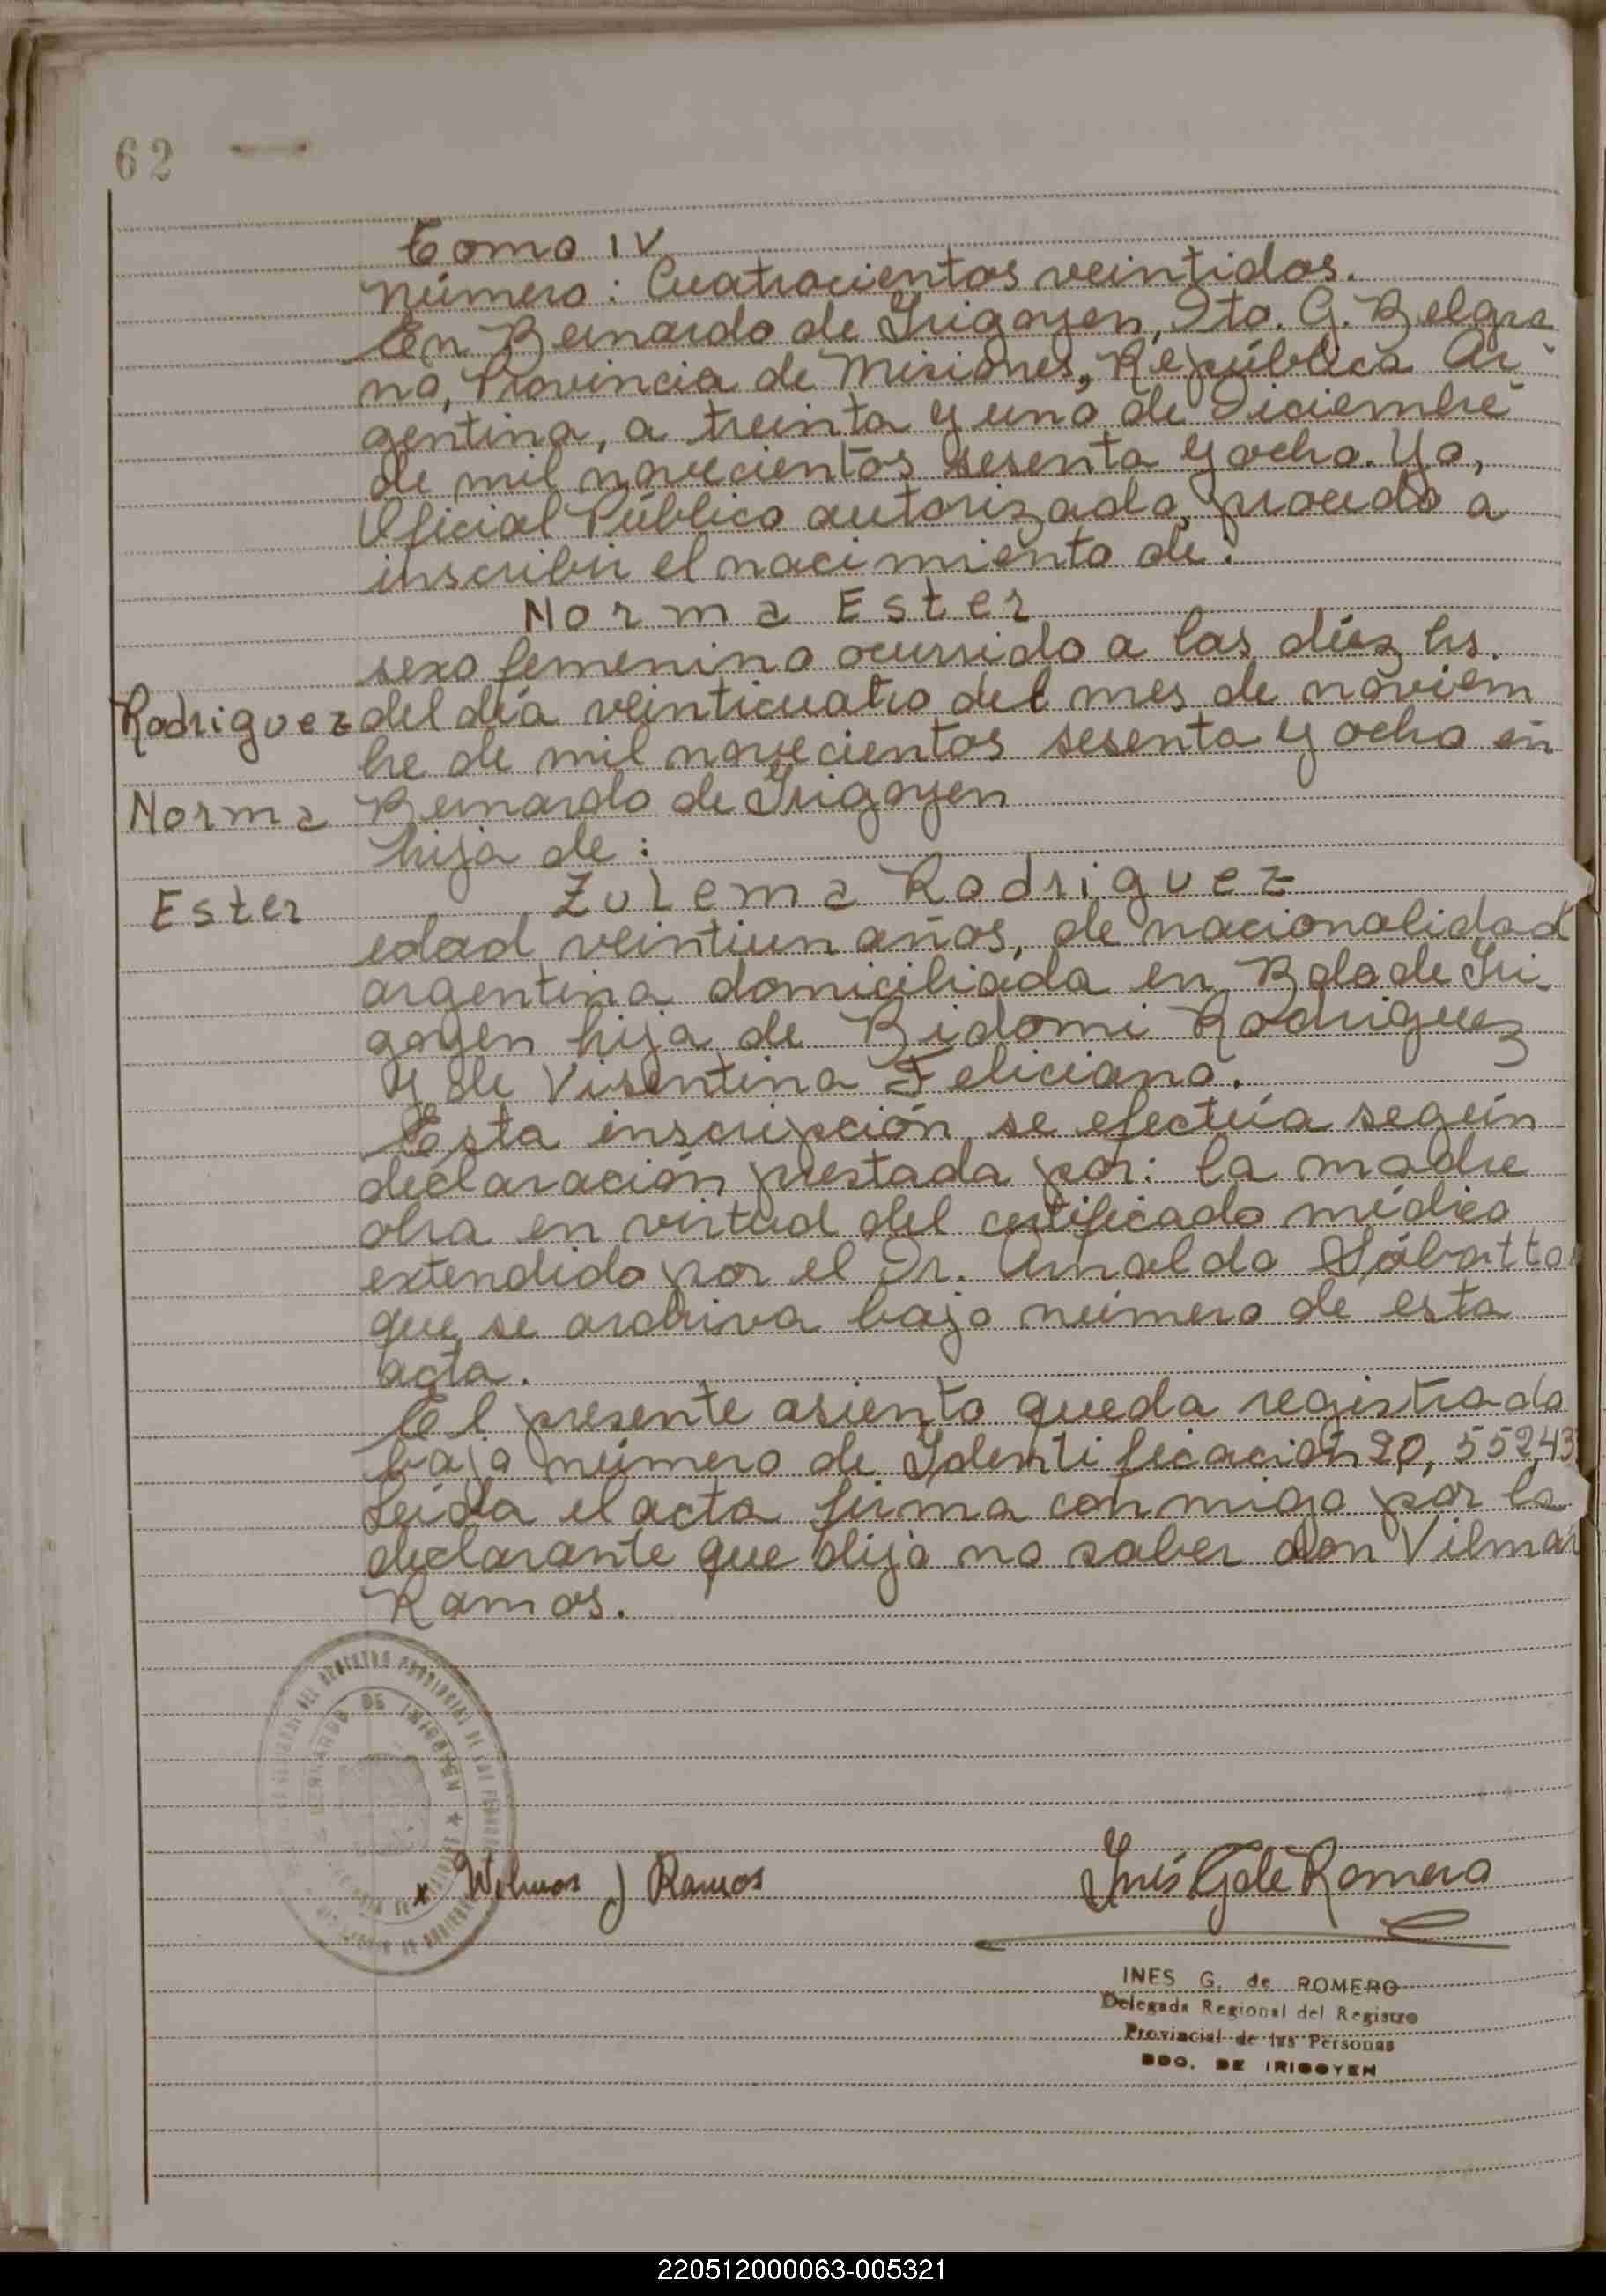 62
Tomo IV
Número: Cuatrocientos veintidos.
En Bernardo de Irigoyen, Dto. G. Belgra
no, Provincia de Misiones, República Ar
gentina, a treinta y uno de Diciembre
de mil novecientos sesenta y ocho. Yo,
Oficial Público autorizado, procedo a
inscribir el nacimiento de:
Norma Ester
sexo femenino ocurrido a las diez hs.
Rodriguez del día veinticuatro del mes de noviem
bre de mil novecientos sesenta y ocho en
Norma Bernardo de Irigoyen
hija de:
Zulema Rodriguez
Ester
edad veintiun años, de nacionalidad
argentina domiciliada en Bdo de Iri
goyen hija de Bidomi Rodriguez
y de Visentina Feliciano.
Esta inscripción se efectúa según
declaración prestada por: la madre
obra en virtud del certificado médico
extendido por el Dr. Arnaldo Sábatto
que se archiva bajo número de esta
acta.
El presente asiento queda registrado
bajo número de Identificación 20,552,43
Leída el acta firma conmigo por la
declarante que dijo no saber don Vilmar
Ramos.
BERNARDO DE IRIGOYEN
x Wilmar J Ramos
Inés G de Romero
INES G. de ROMERO
Delegada Regional del Registro
Provincial de las Personas
BDO. DE IRIGOYEN
220512000063-005321